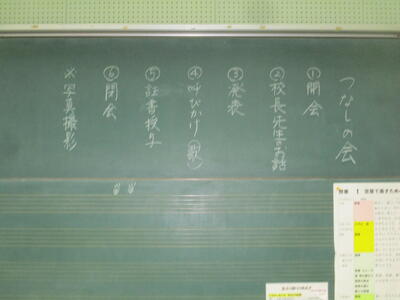 つなしの会
①開会
②校長先生のお話
③発表
④呼びかけ (歌)
⑤証書授与
⑥閉会
※写真撮影